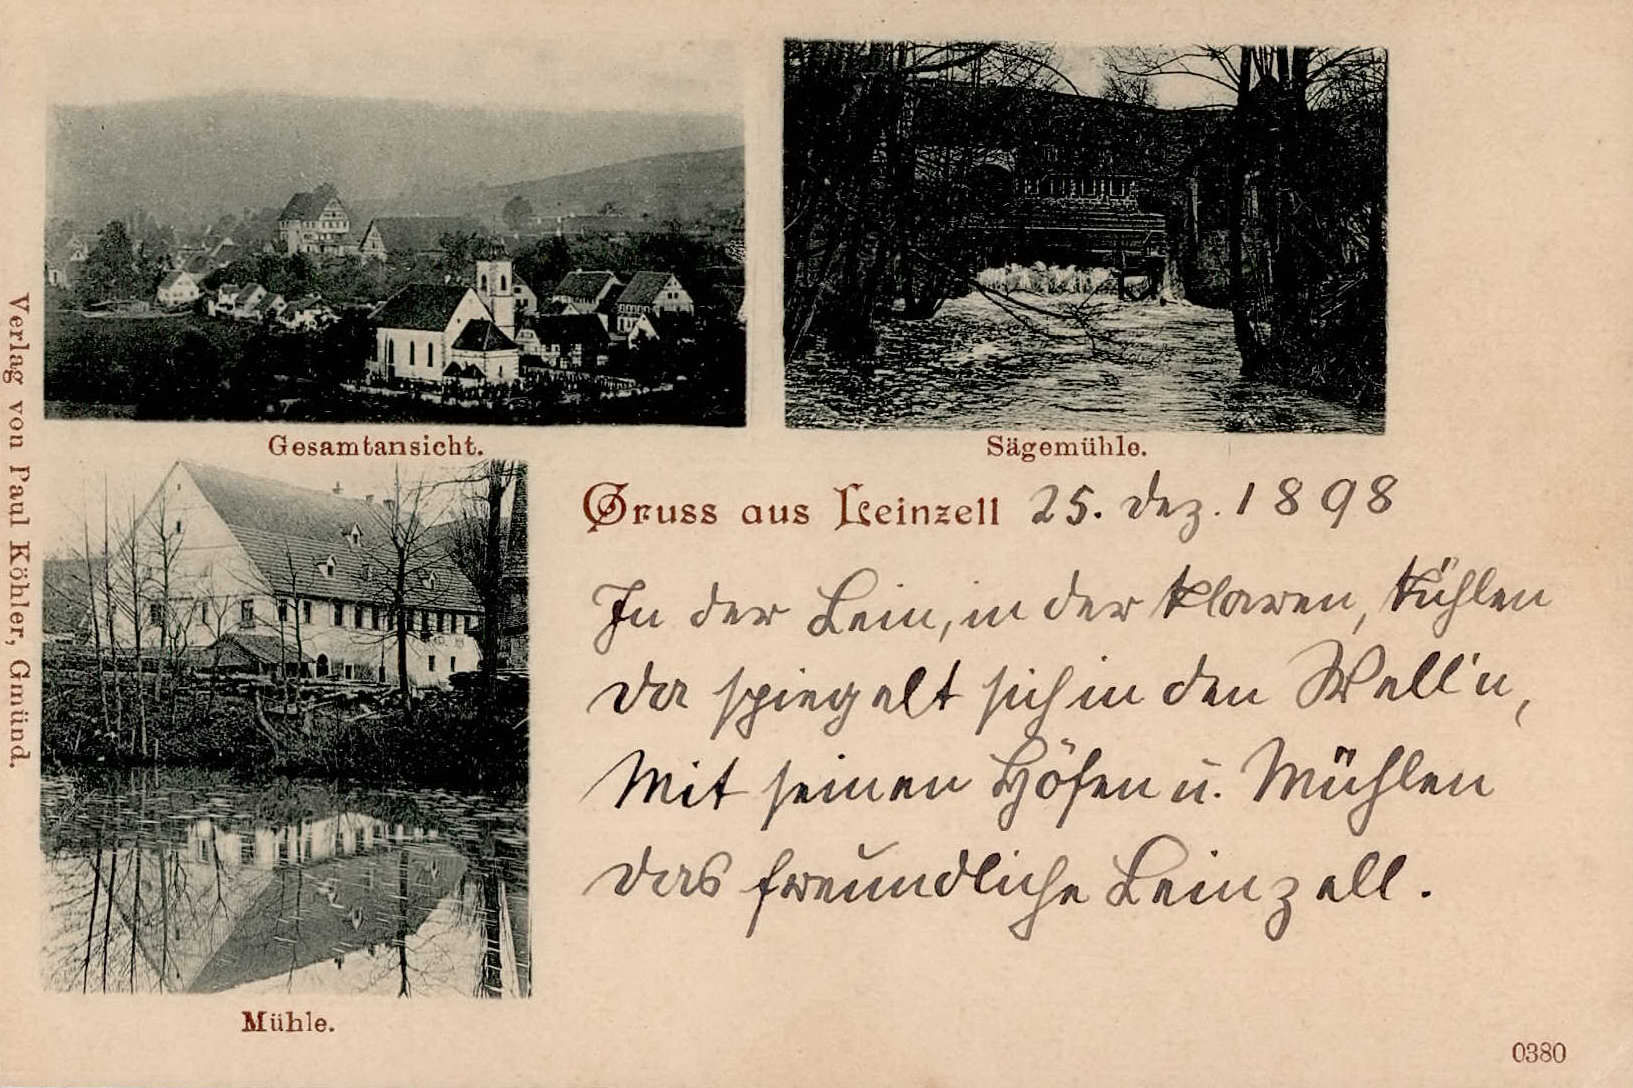 Gesamtansicht.
Sägemühle.
Verlag von Paul Köhler, Gmünd.
Gruss aus Leinzell 25. Dez. 1898
In der Lein, in der klaren, kühlen
da spiegelt sich in den Well'n,
Mit seinen Höfen u. Mühlen
das freundliche Leinzell.
Mühle.
0380